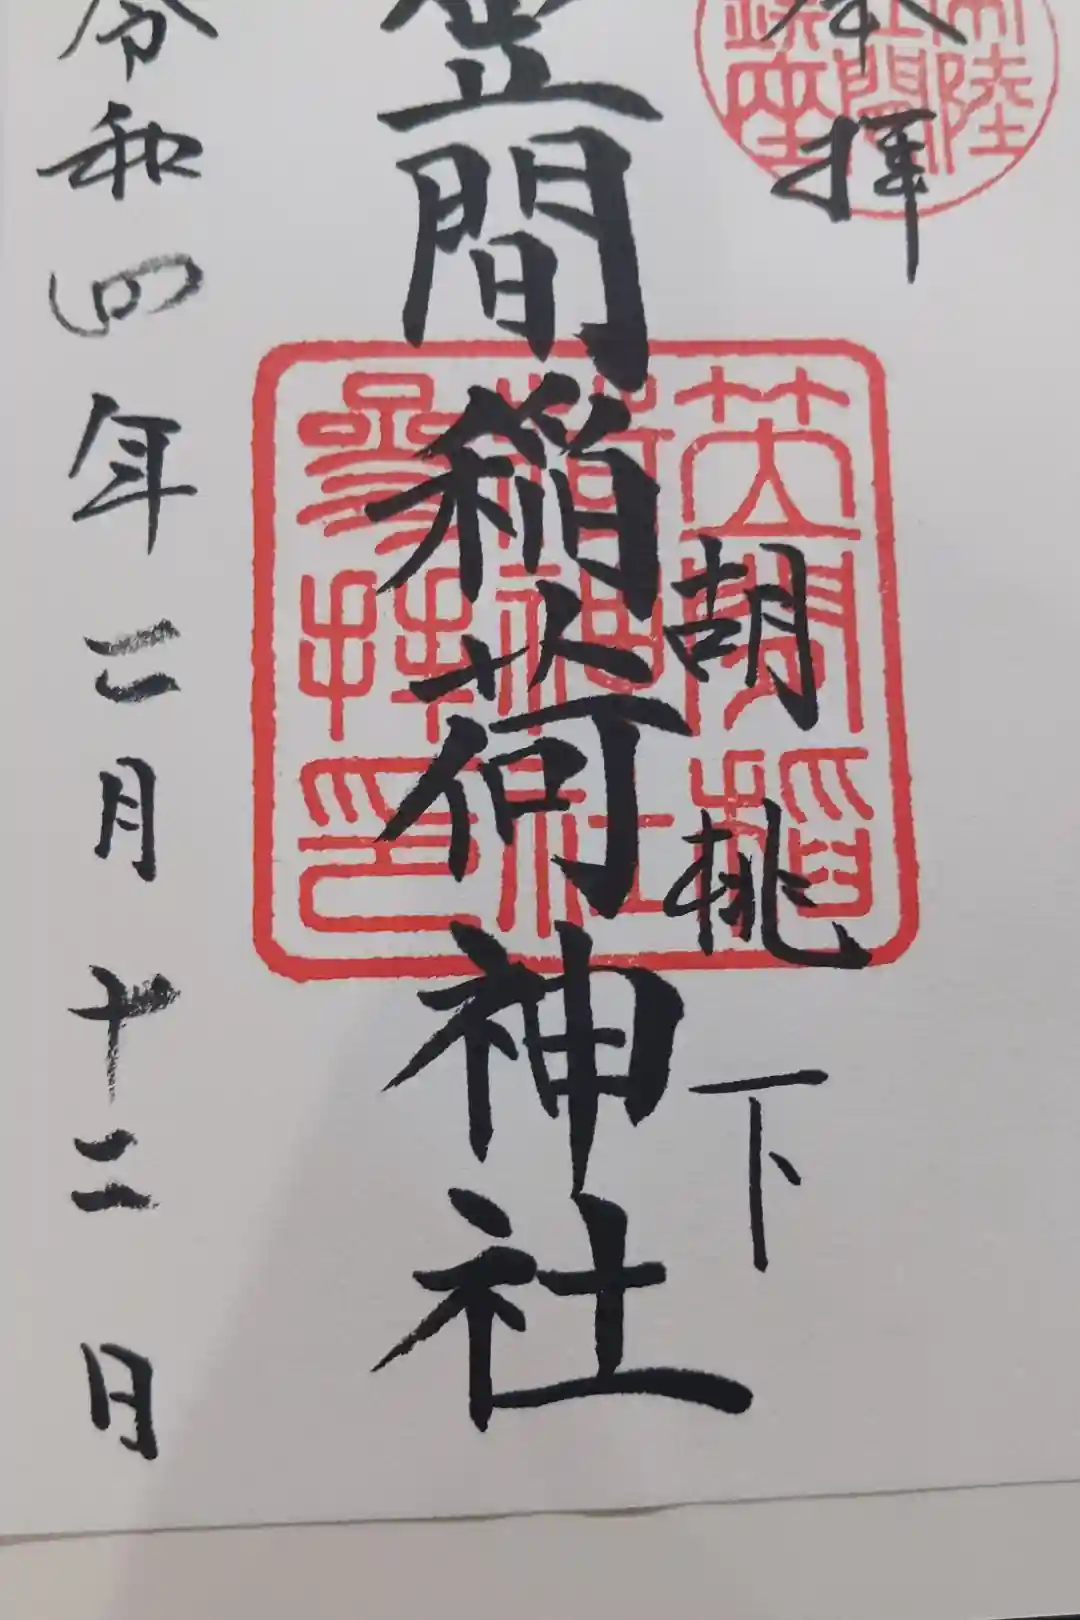 常陸
笠間
鎮座
奉拝
胡桃下
笠間稲
荷神社
参拝印
笠間稲荷神社
令和四年二月十二日